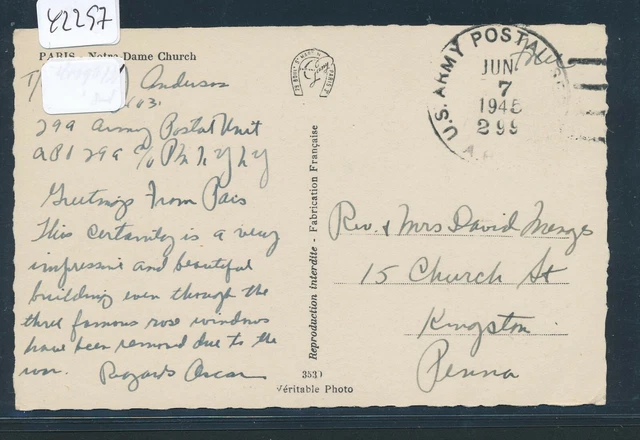 42257
PARIS - Notre-Dame Church
T/ Anderson
299 Army Postal Unit
APO 299 c/o PM N Y N Y
Greetings From Paris
This certainly is a very
impressive and beautiful
building even though the
three famous rose windows
have been removed due to the
war. Regards Oscar
Reproduction interdite - Fabrication Française
3530
Véritable Photo
U.S. ARMY POSTAL
JUN
7
1945
299
Free
Rev. & Mrs David Menges
15 Church St
Kingston
Penna